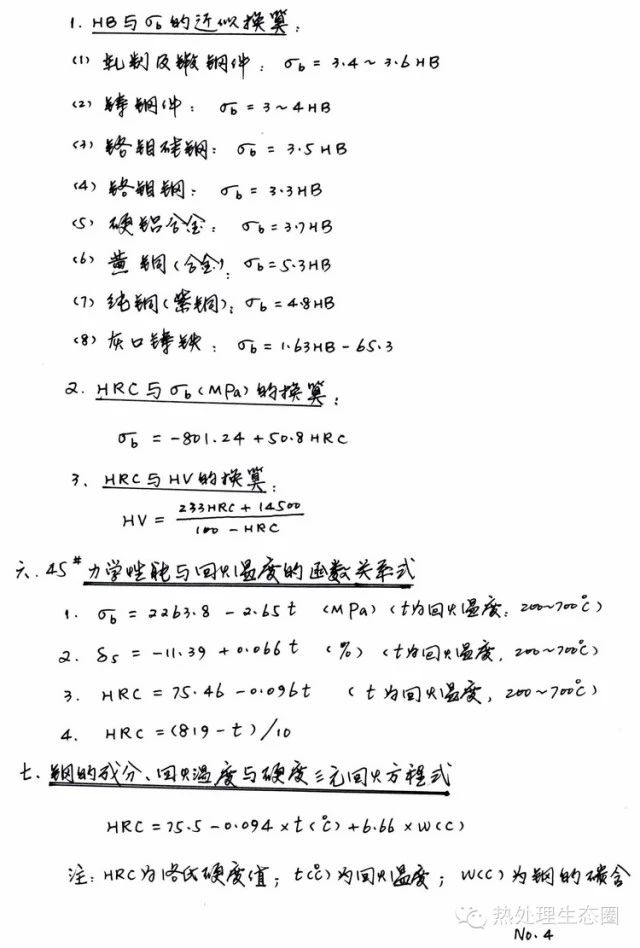 1. HB与σb的近似换算:
(1) 轧制及锻钢件: σb = 3.4~3.6HB
(2) 铸钢件: σb = 3~4HB
(3) 铬钼硅钢: σb = 3.5HB
(4) 铬钼钢: σb = 3.3HB
(5) 硬铝合金: σb = 3.7HB
(6) 黄铜(合金): σb = 5.3HB
(7) 纯铜(紫铜): σb = 4.8HB
(8) 灰口铸铁: σb = 1.63HB - 65.3
2. HRC与σb(MPa)的换算:
σb = -801.24 + 50.8HRC
3. HRC与HV的换算:
HV = (233HRC + 14500) / (100 - HRC)
六. 45# 力学性能与回火温度的函数关系式
1. σb = 2263.8 - 2.65t (MPa) (t为回火温度: 200~700℃)
2. δ5 = -11.39 + 0.066t (%) (t为回火温度, 200~700℃)
3. HRC = 75.46 - 0.096t (t为回火温度, 200~700℃)
4. HRC = (819 - t)/10
七. 钢的成分、回火温度与硬度三元回火方程式
HRC = 75.5 - 0.094 × t(℃) + 6.66 × W(C)
注: HRC为洛氏硬度值; t(℃)为回火温度; W(C)为钢的碳含
热处理生态圈
No. 4